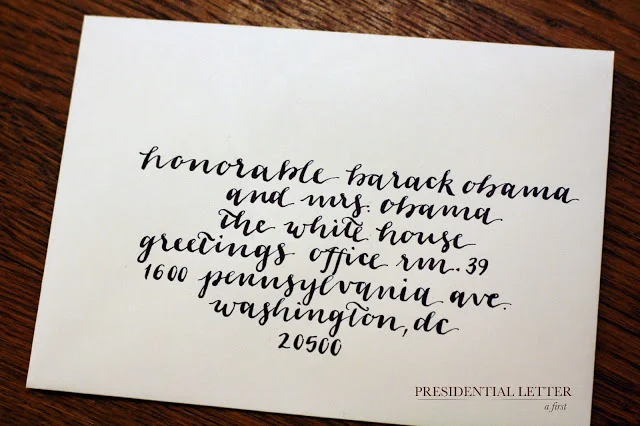 honorable barack obama
and mrs. obama
the white house
greetings office rm. 39
1600 pennsylvania ave.
washington, dc
20500
PRESIDENTIAL LETTER
a first